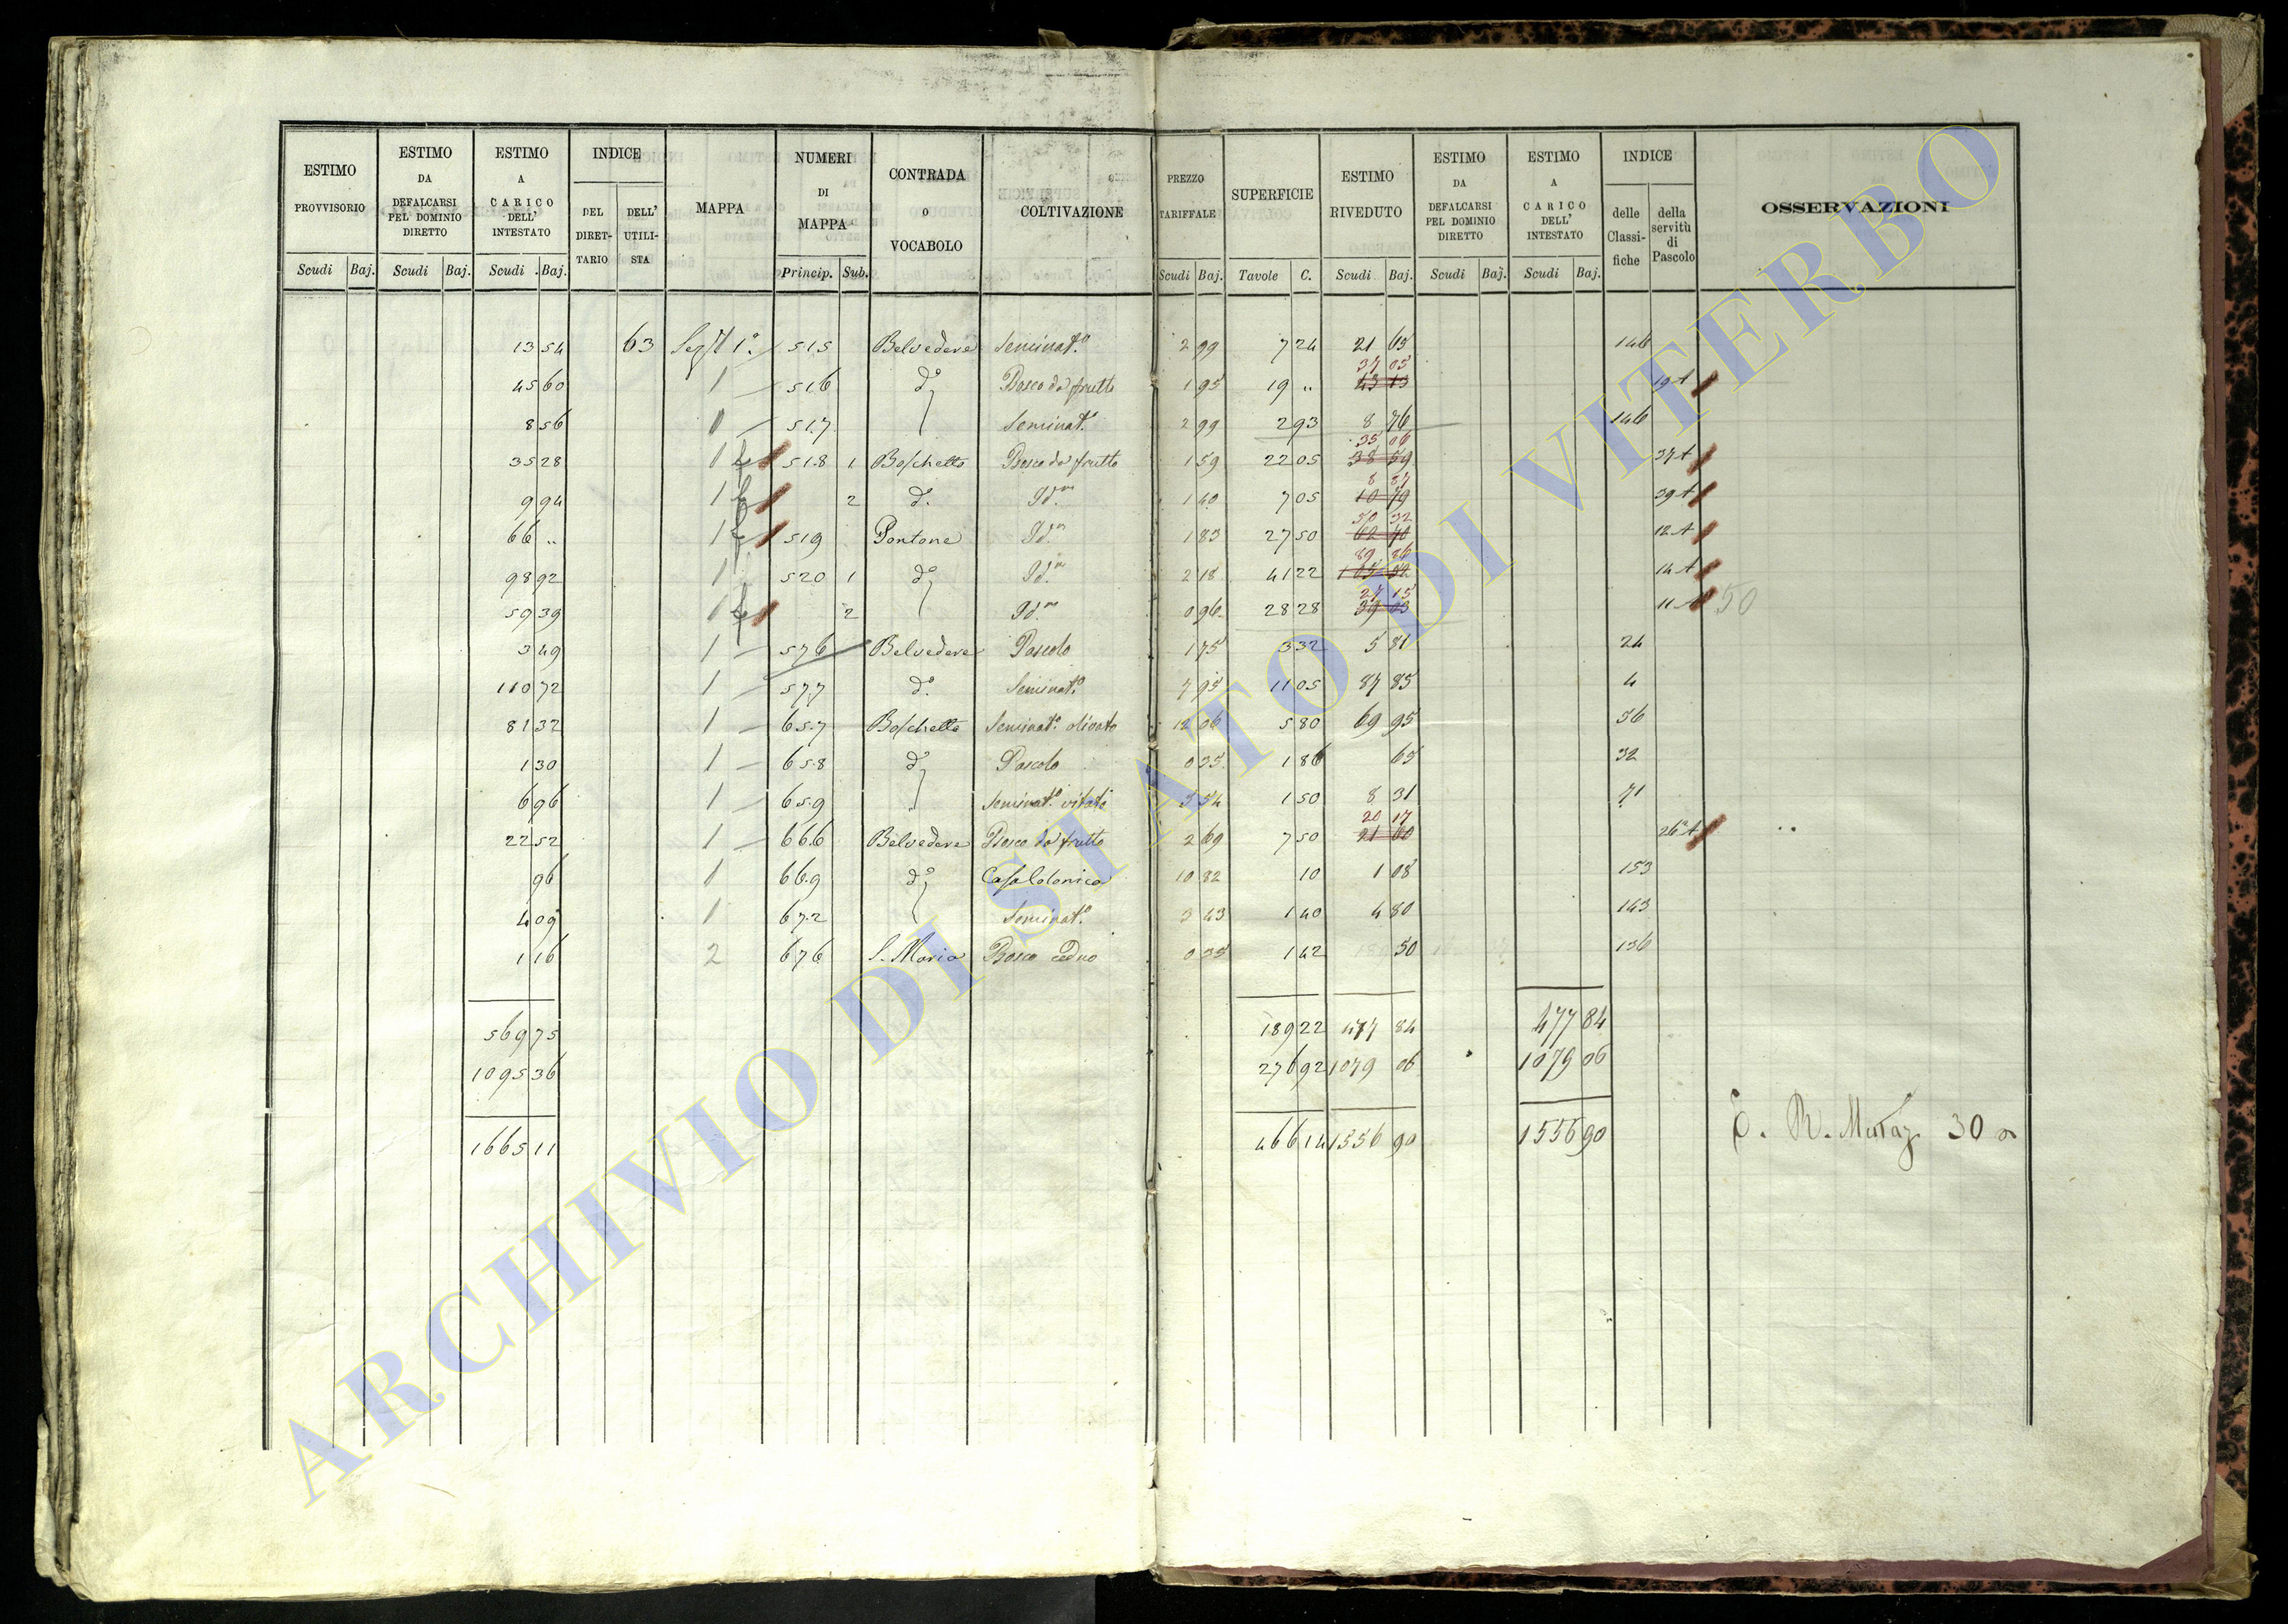 ESTIMO PROVVISORIO Scudi Baj.
ESTIMO DA DEFALCARSI PEL DOMINIO DIRETTO Scudi Baj.
ESTIMO A CARICO DELL' INTESTATO Scudi Baj.
INDICE DEL DIRETTARIO DELL' UTILISTA
MAPPA
NUMERI DI MAPPA Princip. Sub.
CONTRADA O VOCABOLO
COLTIVAZIONE
PREZZO TARIFFALE Scudi Baj.
SUPERFICIE Tavole C.
ESTIMO RIVEDUTO Scudi Baj.
ESTIMO DA DEFALCARSI PEL DOMINIO DIRETTO Scudi Baj.
ESTIMO A CARICO DELL' INTESTATO Scudi Baj.
INDICE delle Classifiche della servitù di Pascolo
OSSERVAZIONI
13 54 63 Sez. 1ª 515 Belvedere Seminat.o 2 99 7 24 21 65 146
45 60 1 516 do Bosco da frutto 1 95 19 " 37 05 19 A
8 56 1 517 Seminat.o 2 99 2 93 8 76 146
35 28 1 518 1 Boschetto Bosco da frutto 1 59 22 05 35 06 38 59 37 A
9 94 1 2 do Id.m 1 40 7 05 8 87 10 79 39 A
66 " 1 519 Pontone Id.m 1 83 27 50 50 32 12 A
98 92 1 520 1 do Id.m 2 18 41 22 89 86 14 A
59 39 1 2 Id.m 0 96 28 28 27 15 11 A 50
3 49 1 576 Belvedere Pascolo 1 75 3 32 5 81 24
110 72 1 577 do Seminat.o 7 95 11 05 87 85 4
81 32 1 657 Boschetto Seminat.o olivato 12 06 5 80 69 95 56
1 30 1 658 do Pascolo 0 35 1 86 65 32
6 96 1 659 Seminat.o vitato 5 54 1 50 8 31 71
22 52 1 666 Belvedere Bosco da frutto 2 69 7 50 20 17 21 60 26 A
96 1 669 do Casa Colonica 10 82 10 1 08 153
4 09 1 672 Seminat.o 3 43 1 40 4 80 143
1 16 2 676 S. Maria Bosco ceduo 0 35 1 42 50 136
569 75 189 22 477 84 477 84
1095 36 276 92 1079 06 1079 06
1665 11 466 14 1556 90 1556 90
R. Mutaz. 30
ARCHIVIO DI STATO DI VITERBO